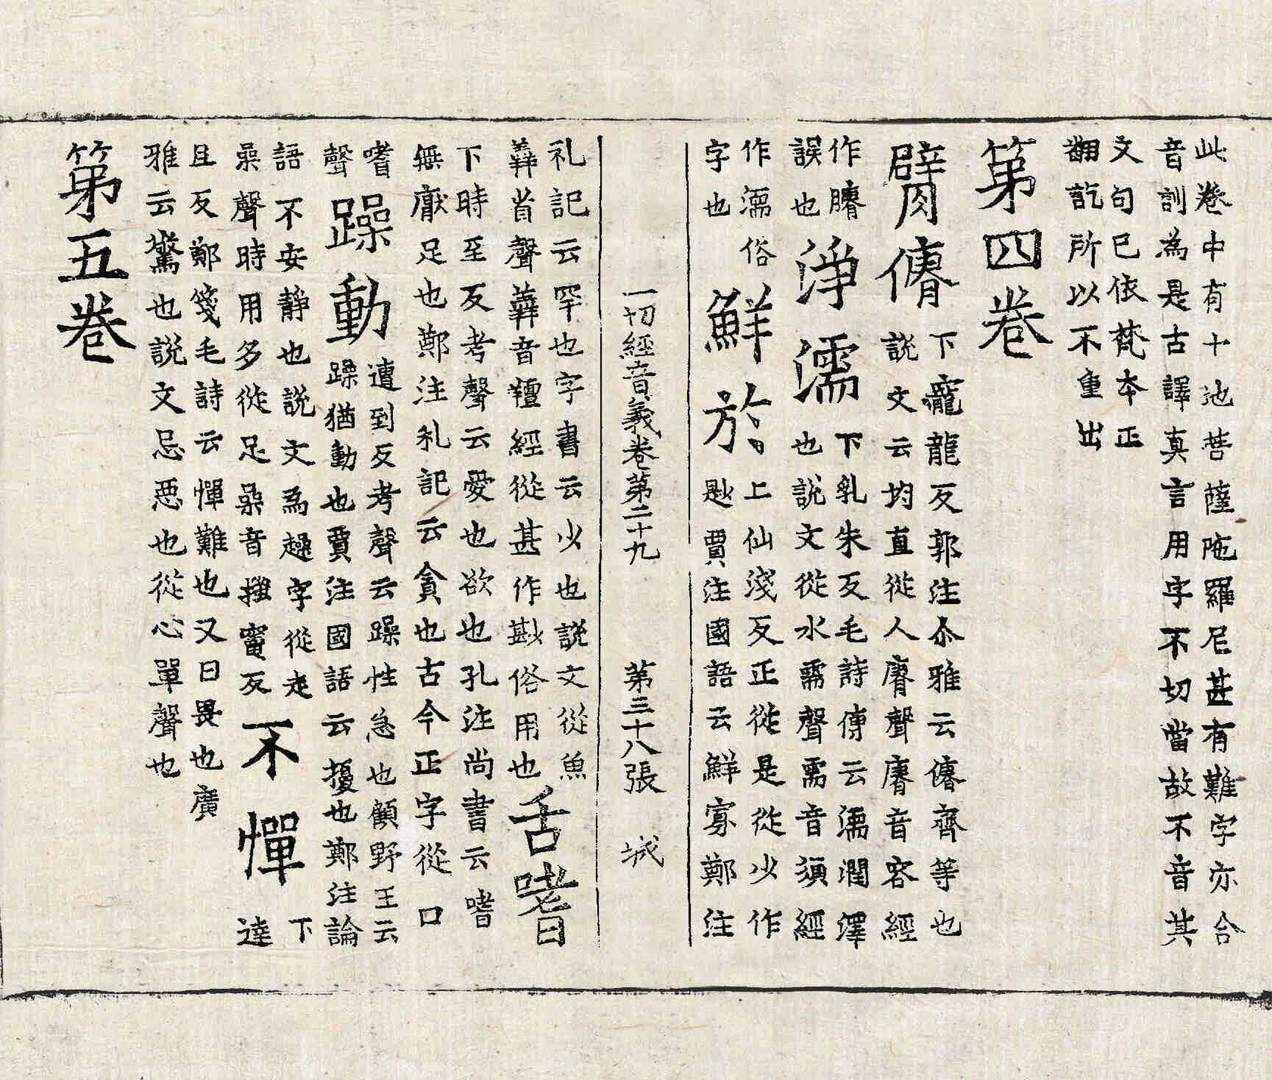 此卷中有十地菩薩陁羅尼甚有難字亦合
音訓為是古譯真言用字不切當故不音其
文句已依梵本正
翻訖所以不重出
第四卷
臂傭
下寵龍反郭注尒雅云傭齊等也
說文云均直從人庸聲庸音容經
作𦡱
誤也
淨濡
下乳朱反毛詩傳云濡潤澤
也說文從水需聲需音須經
作濡俗
字也
鮮於
上仙淺反正從是從少作
尟賈注國語云鮮寡鄭注
一切經音義卷第二十九 第三十八張 城
礼記云罕也字書云少也說文從魚
羴省聲羴音羶經從甚作尠俗用也
舌嗜
下時至反考聲云愛也欲也孔注尚書云嗜
無厭足也鄭注礼記云貪也古今正字從口
嗜
聲
躁動
遭到反考聲云躁性急也顧野王云
躁猶動也賈注國語云擾也鄭注論
語不安靜也說文為趮字從走
喿聲時用多從足喿音搔竈反
不憚
下
達
且反鄭箋毛詩云憚難也又曰畏也廣
雅云驚也說文忌惡也從心單聲也
第五卷